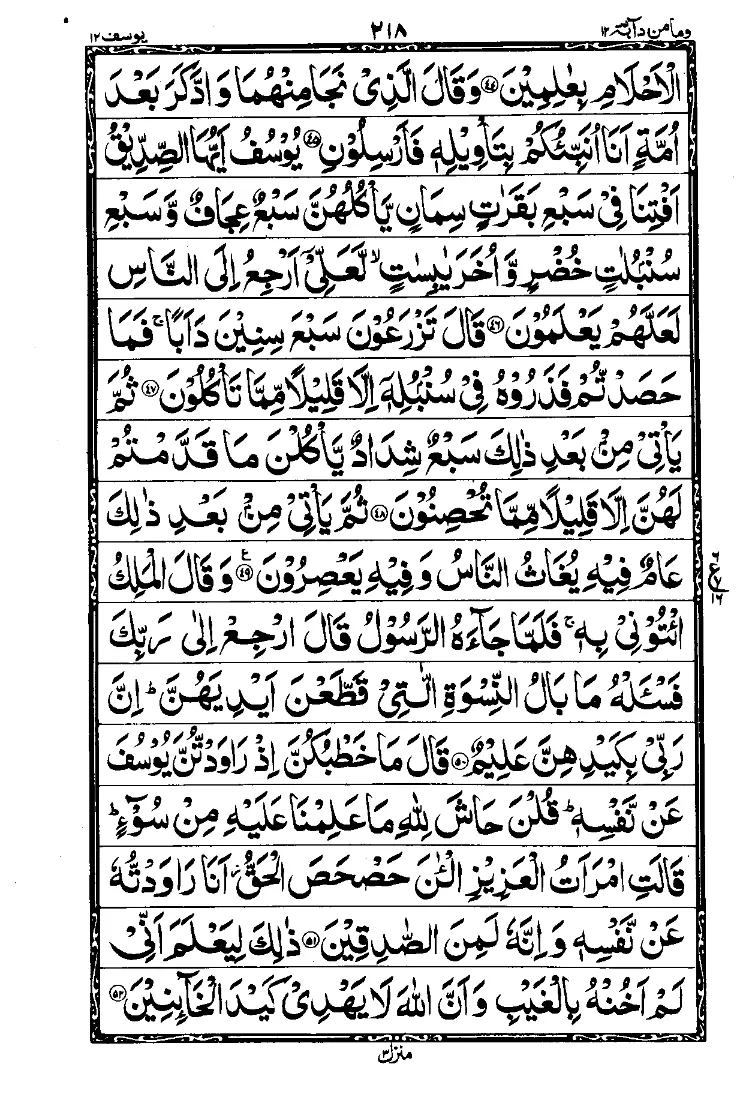 وما من دآبة ١٢ ٢١٨ يوسف ١٢
الْاَحْلَامِ بِعٰلِمِيْنَ ﴿۴۴﴾ وَقَالَ الَّذِیْ نَجَا مِنْهُمَا وَ ادَّكَرَ بَعْدَ
اُمَّةٍ اَنَا اُنَبِّئُكُمْ بِتَاْوِيْلِهٖ فَاَرْسِلُوْنِ ﴿۴۵﴾ يُوْسُفُ اَيُّهَا الصِّدِّيْقُ
اَفْتِنَا فِیْ سَبْعِ بَقَرٰتٍ سِمَانٍ يَّاْكُلُهُنَّ سَبْعٌ عِجَافٌ وَّ سَبْعِ
سُنْۢبُلٰتٍ خُضْرٍ وَّ اُخَرَ يٰبِسٰتٍ ۙ لَّعَلِّیْۤ اَرْجِعُ اِلَی النَّاسِ
لَعَلَّهُمْ يَعْلَمُوْنَ ﴿۴۶﴾ قَالَ تَزْرَعُوْنَ سَبْعَ سِنِيْنَ دَاَبًا ۚ فَمَا
حَصَدْتُّمْ فَذَرُوْهُ فِیْ سُنْۢبُلِهٖۤ اِلَّا قَلِيْلًا مِّمَّا تَاْكُلُوْنَ ﴿۴۷﴾ ثُمَّ
يَاْتِیْ مِنْۢ بَعْدِ ذٰلِكَ سَبْعٌ شِدَادٌ يَّاْكُلْنَ مَا قَدَّمْتُمْ
لَهُنَّ اِلَّا قَلِيْلًا مِّمَّا تُحْصِنُوْنَ ﴿۴۸﴾ ثُمَّ يَاْتِیْ مِنْۢ بَعْدِ ذٰلِكَ
عَامٌ فِيْهِ يُغَاثُ النَّاسُ وَ فِيْهِ يَعْصِرُوْنَ ﴿۴۹﴾ ع وَ قَالَ الْمَلِكُ
ائْتُوْنِیْ بِهٖ ۚ فَلَمَّا جَآءَهُ الرَّسُوْلُ قَالَ ارْجِعْ اِلٰی رَبِّكَ
فَسْـَٔلْهُ مَا بَالُ النِّسْوَةِ الّٰتِیْ قَطَّعْنَ اَيْدِيَهُنَّ ؕ اِنَّ
رَبِّیْ بِكَيْدِهِنَّ عَلِيْمٌ ﴿۵۰﴾ قَالَ مَا خَطْبُكُنَّ اِذْ رَاوَدْتُّنَّ يُوْسُفَ
عَنْ نَّفْسِهٖ ؕ قُلْنَ حَاشَ لِلّٰهِ مَا عَلِمْنَا عَلَيْهِ مِنْ سُوْٓءٍ ؕ
قَالَتِ امْرَاَتُ الْعَزِيْزِ الْـٰٔنَ حَصْحَصَ الْحَقُّ ۫ اَنَا رَاوَدْتُّهٗ
عَنْ نَّفْسِهٖ وَ اِنَّهٗ لَمِنَ الصّٰدِقِيْنَ ﴿۵۱﴾ ذٰلِكَ لِيَعْلَمَ اَنِّیْ
لَمْ اَخُنْهُ بِالْغَيْبِ وَ اَنَّ اللّٰهَ لَا يَهْدِیْ كَيْدَ الْخَآئِنِيْنَ ﴿۵۲﴾
منزل ٣